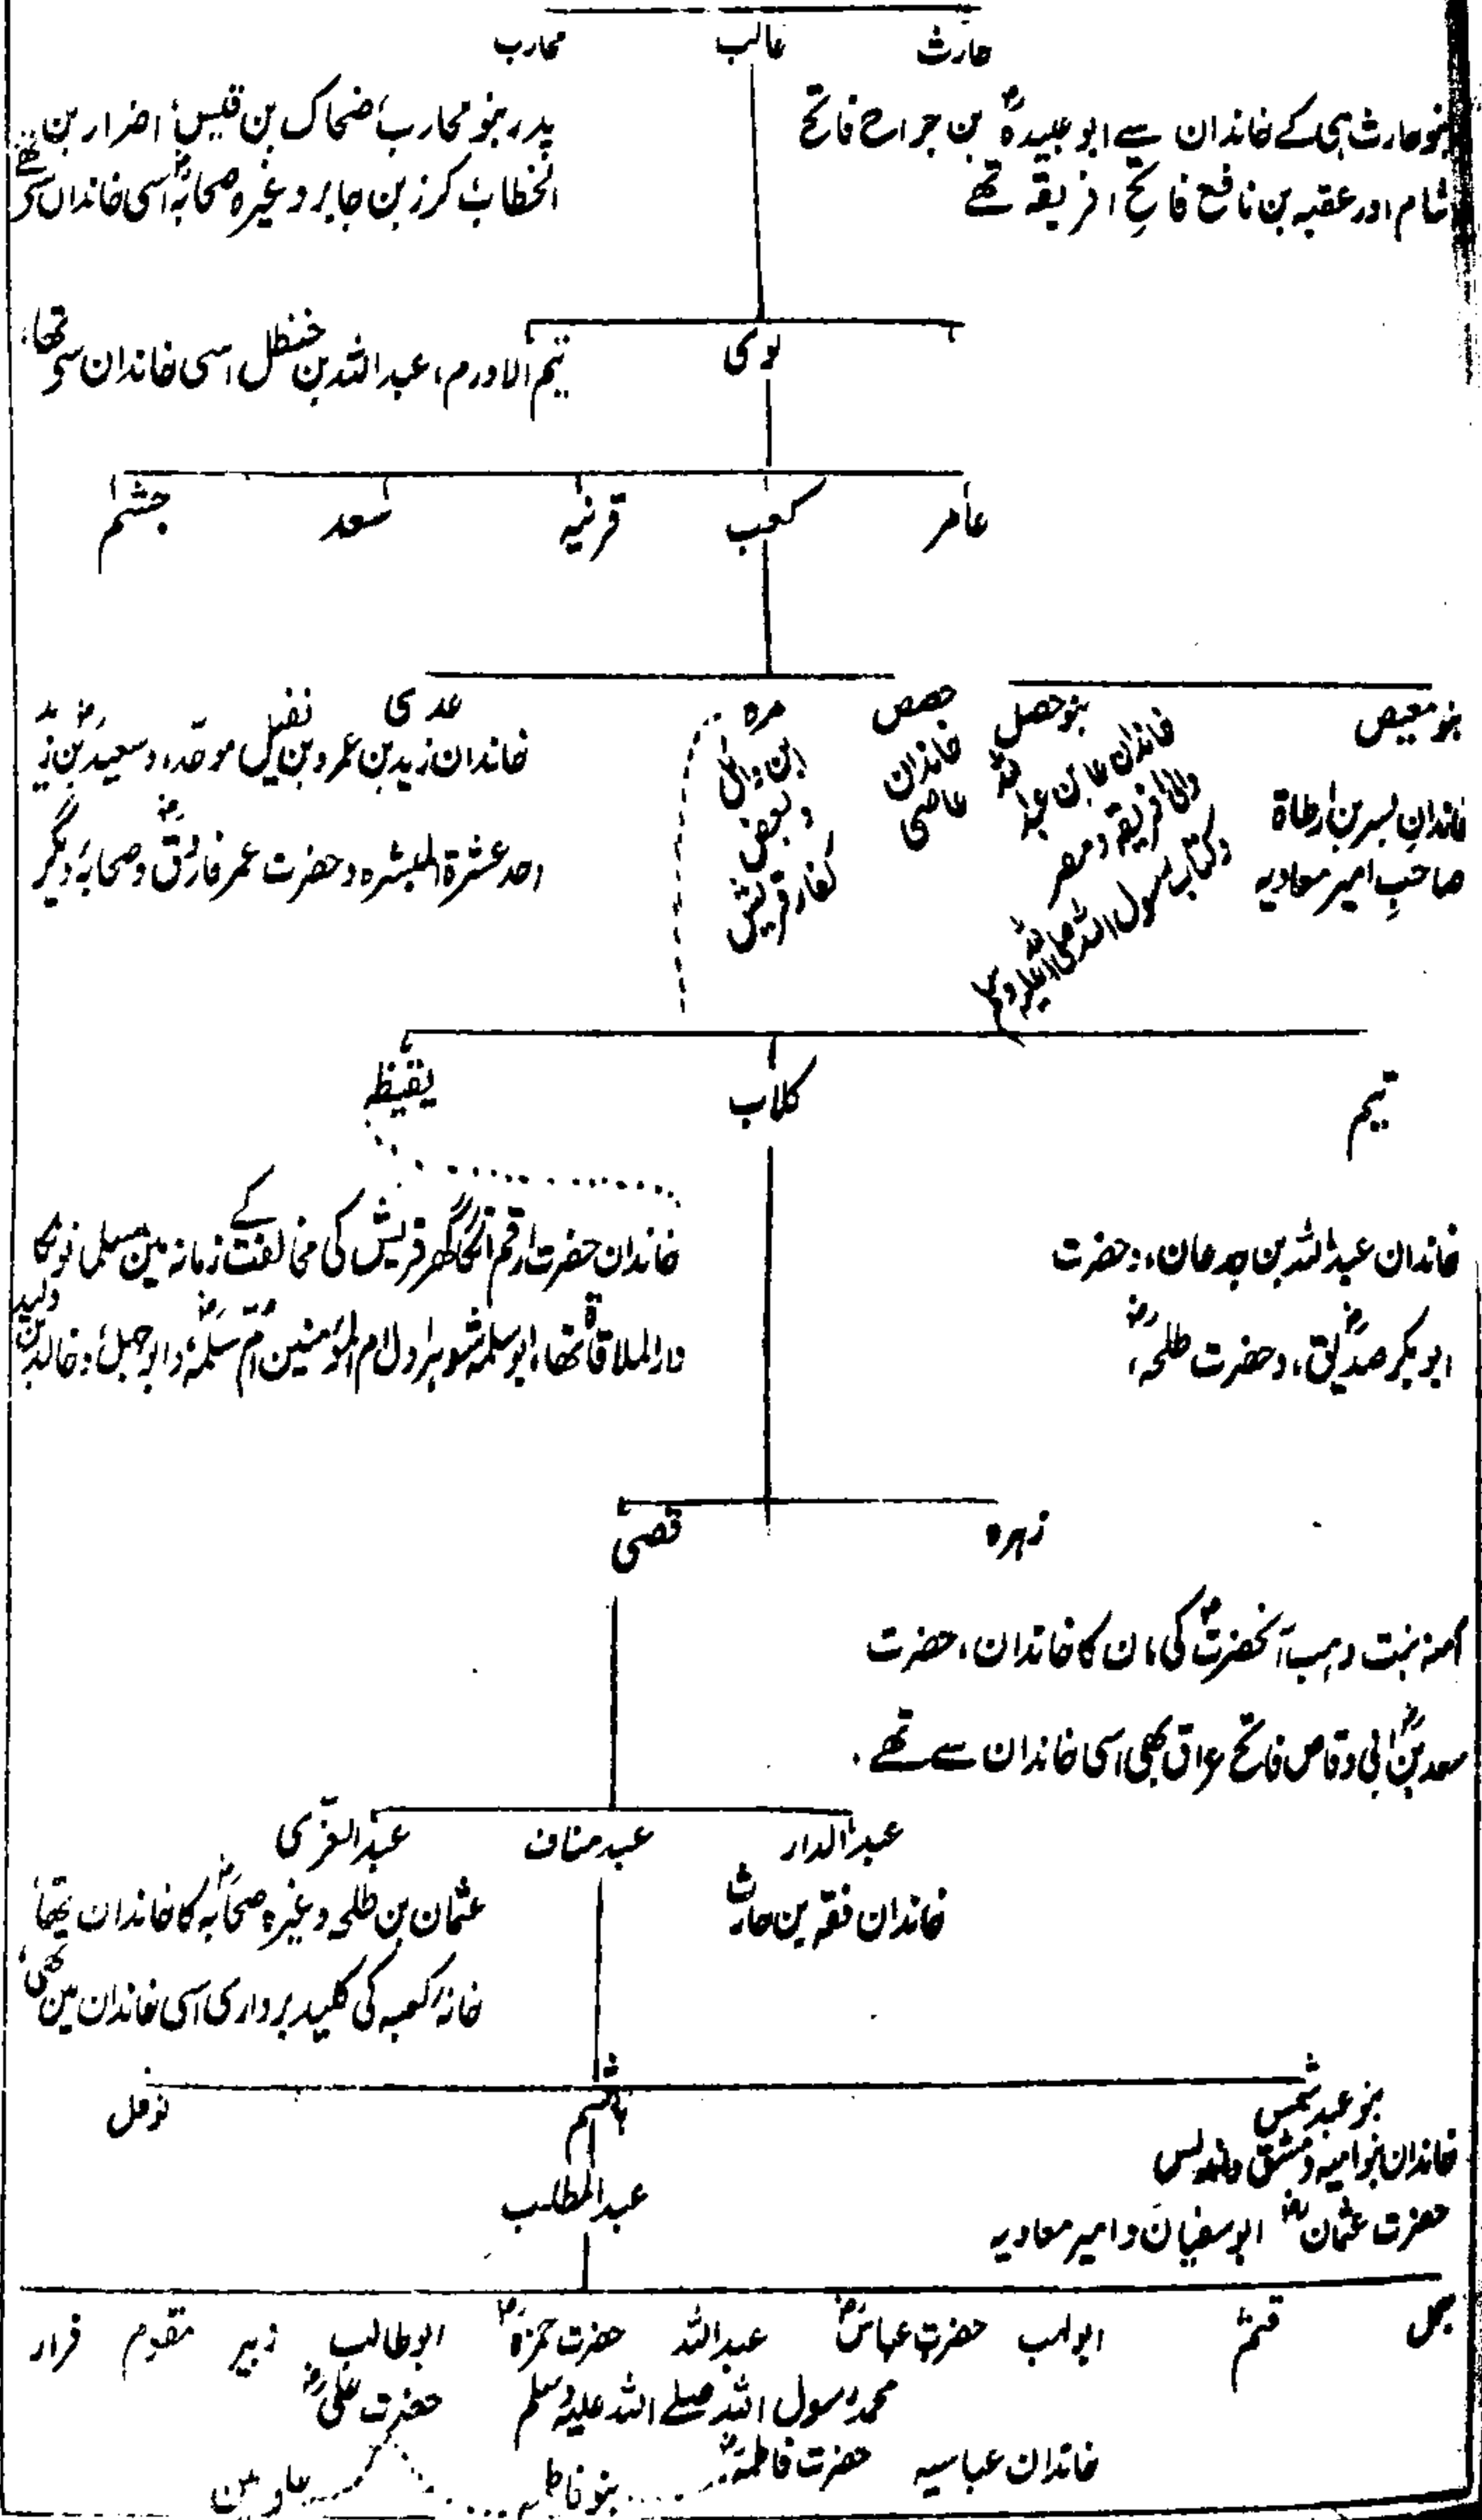 حارث غالب محارب
بنو حارث ہی کے خاندان سے ابو عبیدہؓ بن جراح فاتح
شام اور عقبہ بن نافع فاتح افریقہ تھے
پدر بنو محارب، ضحاک بن قیس، اضرار بن
الخطاب کرز بن جابر وغیرہ صحابہؓ اسی خاندان سے تھے
لوی
تیم الاورم، عبد اللہ بن خنظل اسی خاندان سے تھا،
عامر کعب قرنیہ سعد جشم
بنو معیص بنو حصل حصص مرہ عدی
خاندان بسر بن ارطاۃ
صاحب امیر معاویہ
والی افریقہ و مصر
و کتاب رسول اللہ صلی اللہ علیہ وسلم
خاندان
عاصی
و بعض
کفار قریش
خاندان زید بن عمرو بن نفیل موحد، و سعیدؓ بن زید
احد عشرۃ المبشرہ و حضرت عمر فاروقؓ و صحابہ دیگر
تیم کلاب یقیظہ
خاندان عبد اللہ بن جدعان، و حضرت
ابو بکر صدیقؓ، و حضرت طلحہؓ،
خاندان حضرت ارقم انکا گھر قریش کی مخالفت کے زمانہ مین مسلمانون کا
دار الملاقاۃ تھا، ابو سلمہ شوہر اول ام المومنین ام سلمہؓ، و ابو جہل، و خالد بن ولید
زہرہ قصی
آمنہ بنت وہب آنحضرتؐ کی مان کا خاندان، حضرت
سعد بنؓ ابی وقاص فاتح عراق بھی اسی خاندان سے تھے.
عبد الدار عبد مناف عبد العزی
خاندان فقہ بن حارث
عثمان بن طلحہ وغیرہ صحابہؓ کا خاندان تھا
خانہ کعبہ کی کلید برداری اسی خاندان مین تھی،
بنو عبد شمس ہاشم نوفل
خاندان بنو امیہ دمشق و اندلس
حضرت عثمانؓ ابو سفیان و امیر معاویہ
عبد المطلب
جحل قثم ابو لہب حضرت عباسؓ عبد اللہ حضرت حمزہؓ ابو طالب زبیر مقوم فرار
محمد رسول اللہ صلے اللہ علیہ وسلم حضرت علیؓ
خاندان عباسیہ حضرت فاطمہؓ بنو فاطمہ علویین